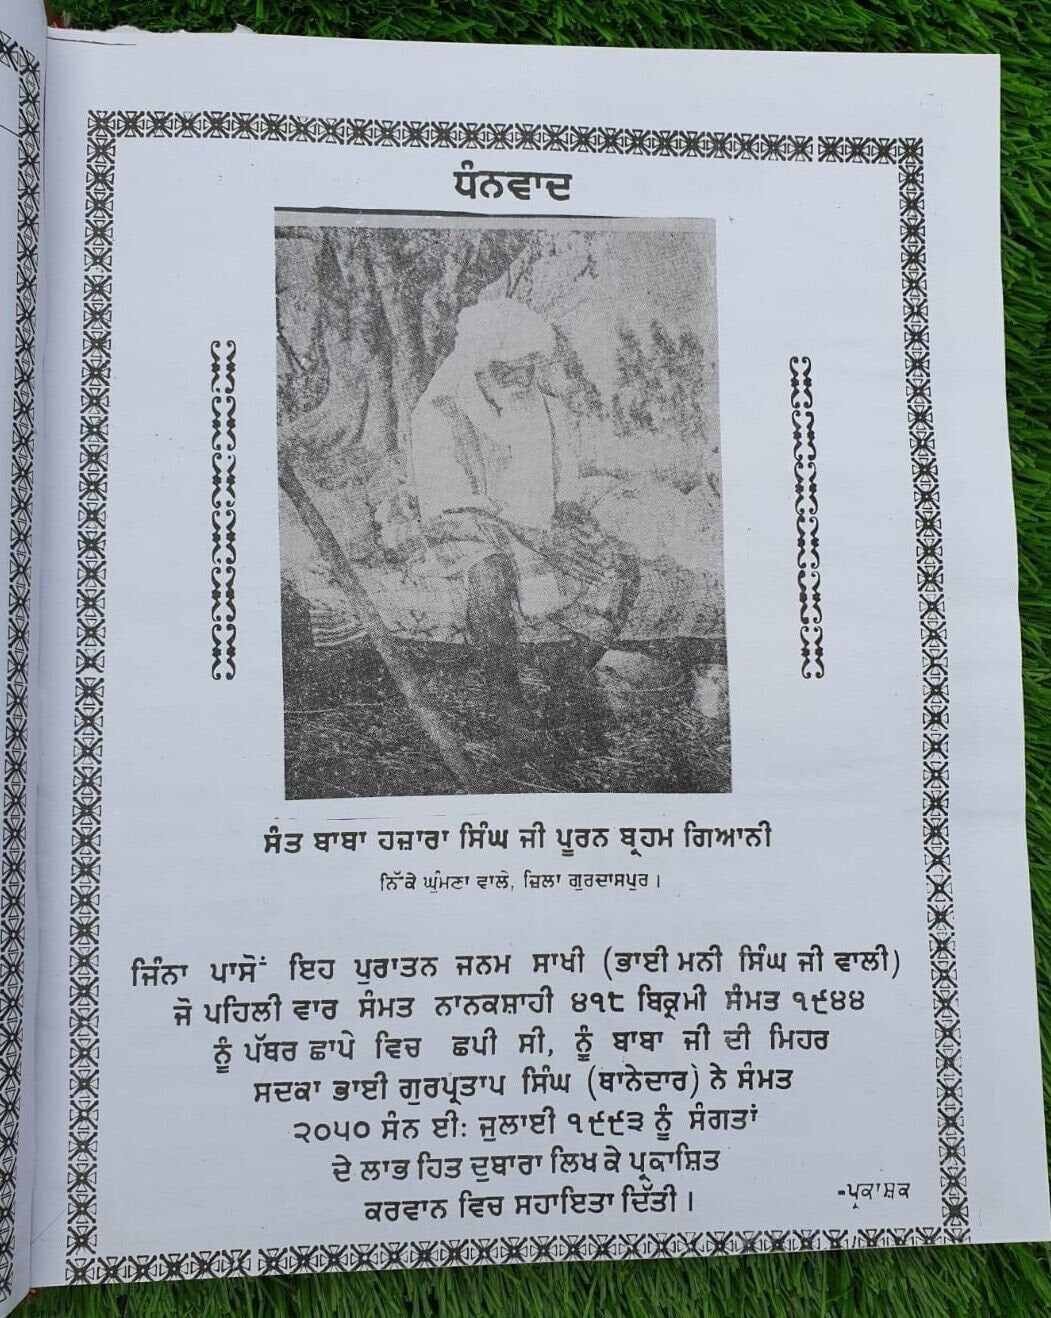 ਧੰਨਵਾਦ
ਸੰਤ ਬਾਬਾ ਹਜ਼ਾਰਾ ਸਿੰਘ ਜੀ ਪੂਰਨ ਬ੍ਰਹਮ ਗਿਆਨੀ
ਨਿੱਕੇ ਘੁੰਮਣਾ ਵਾਲੇ, ਜ਼ਿਲਾ ਗੁਰਦਾਸਪੁਰ।
ਜਿੰਨਾ ਪਾਸੋਂ ਇਹ ਪੁਰਾਤਨ ਜਨਮ ਸਾਖੀ (ਭਾਈ ਮਨੀ ਸਿੰਘ ਜੀ ਵਾਲੀ)
ਜੋ ਪਹਿਲੀ ਵਾਰ ਸੰਮਤ ਨਾਨਕਸ਼ਾਹੀ ੪੧੮ ਬਿਕ੍ਰਮੀ ਸੰਮਤ ੧੯੪੪
ਨੂੰ ਪੱਥਰ ਛਾਪੇ ਵਿਚ ਛਪੀ ਸੀ, ਨੂੰ ਬਾਬਾ ਜੀ ਦੀ ਮਿਹਰ
ਸਦਕਾ ਭਾਈ ਗੁਰਪ੍ਰਤਾਪ ਸਿੰਘ (ਥਾਨੇਦਾਰ) ਨੇ ਸੰਮਤ
੨੦੫੦ ਸੰਨ ਈ: ਜੁਲਾਈ ੧੯੯੩ ਨੂੰ ਸੰਗਤਾਂ
ਦੇ ਲਾਭ ਹਿਤ ਦੁਬਾਰਾ ਲਿਖ ਕੇ ਪ੍ਰਕਾਸ਼ਿਤ
ਕਰਵਾਨ ਵਿਚ ਸਹਾਇਤਾ ਦਿੱਤੀ।
-ਪ੍ਰਕਾਸ਼ਕ